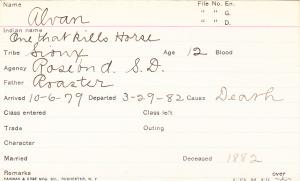 Name Alvan File No. En.
" " G.
" " D.
Indian name One that Kills Horse
Tribe Sioux Age 12 Blood
Agency Rosebud. S.D.
Father Roaster
Arrived 10-6-79 Departed 3-29-82 Cause Death
Class entered Class left
Trade Outing
Character
Married Deceased 1882
Remarks over